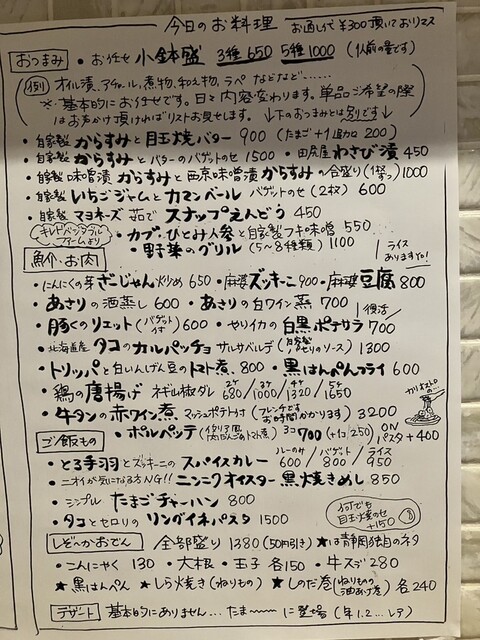 今日のお料理 お通し代 ¥300 頂いております
おつまみ ・お任せ 小鉢盛 3種650 5種1000 (1人前の量です)
例 オイル漬、アチャール、煮物、和え物、ラペ などなど……
※基本的にお任せです。日々内容変わります。単品ご希望の際
はお声かけ頂ければリストお見せします。↓下のおつまみとは別りです↓
・自家製 からすみと目玉焼バター 900 (たまご+1追加 200)
・自家製 からすみとバターのバゲットのせ 1500 ・田尻屋 わさび漬 450
・自家製 味噌漬からすみと西京味噌漬からすみの合盛り 1000
・自家製 いちごジャムとカマンベール バゲットのせ(2枚) 600
・自家製 マヨネーズ 茹でスナップえんどう 450
キレドベジタブルファームより ・カブ、ひとみ人参と自家製フキ味噌 550
・野菜のグリル (5~8種類) 1100
魚介・お肉
ライスありますYo!
・にんにくの芽ざじゃん炒め 650 ・麻婆ズッキーニ 900 ・麻婆豆腐 800
・あさりの酒蒸し 600 ・あさりの白ワイン蒸 700
・豚くのリエット(バゲット付) 600 ・ヤリイカの白黒ポテサラ 700 復活
・北海道産 タコのカルパッチョ サルサベルデ (自家製 パセリのソース) 1300
・トリッパと白いんげん豆のトマト煮. 800 ・黒はんぺんフライ 600
・鶏の唐揚げ ネギ山椒ダレ 2ケ680/3ケ1000/4ケ1320/5ケ1650
・牛タンの赤ワイン煮 マッシュポテト付 (フレンチです お時間かかります) 3200
・ポルペッテ (イタリア風 肉だんごのトマト煮) 3コ 700 (+1コ 250) ONパスタ+400
ご飯もの
・とろ手羽とズッキーニのスパイスカレー ルーのみ600/バゲット800/ライス950
・ニオイが気になる方NG!! ニンニクオイスター黒焼きめし 850
・シンプル たまごチャーハン 800
・タコとセロリのリングイネパスタ 1500
何でも目玉焼のせ+150
しぞ〜かおでん 全部盛り 1380 (50円引き) ★は静岡独自のネタ
・こんにゃく 130 ・大根・玉子 各150 ・牛スジ 280
★黒はんぺん ★しら焼き(ねりもの) ★しのだ巻(ねりもの 油あげ巻) 各240
デザート 基本的にありません…たま〜〜に登場(年1.2…レア)